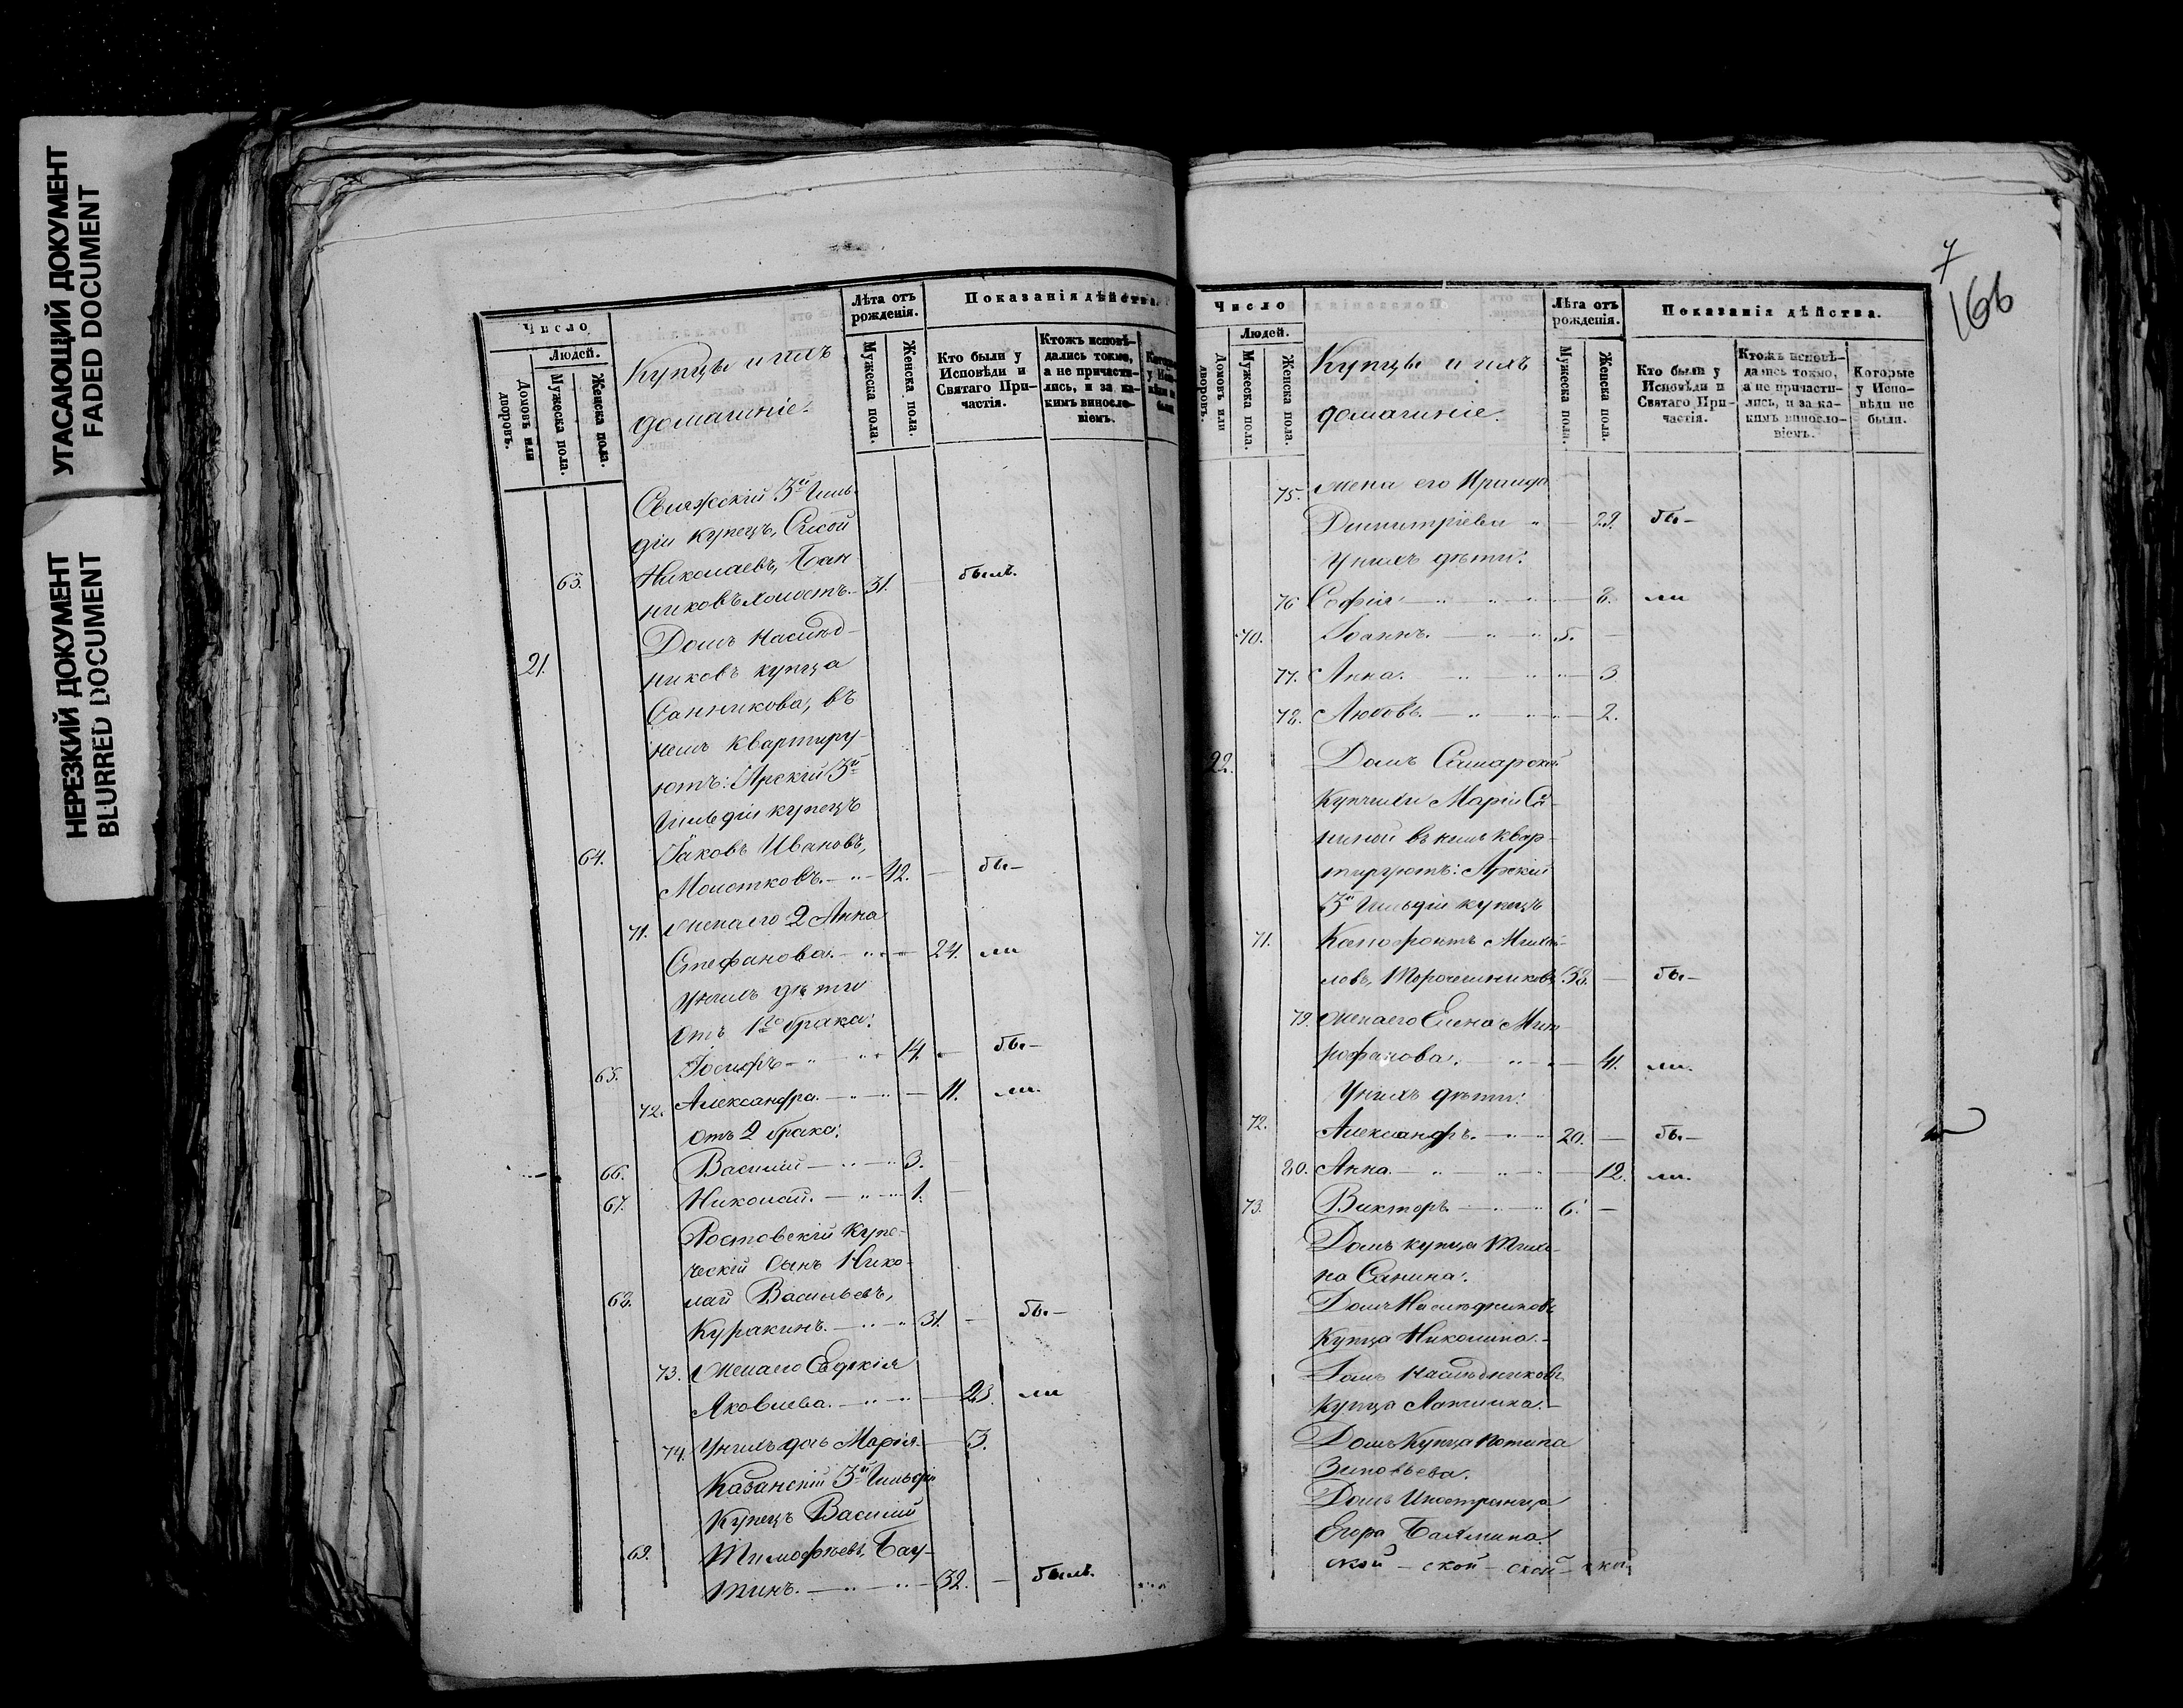 УГАСАЮЩИЙ ДОКУМЕНТ
FADED DOCUMENT
НЕРЕЗКИЙ ДОКУМЕНТ
BLURRED DOCUMENT
Число
Людей.
Домовъ или дворовъ.
Мужеска пола.
Женска пола.
Купцы и ихъ
домашніе.
Лѣта отъ
рожденія.
Мужеска пола.
Женска пола.
Показанія дѣйства.
Кто были у
Исповѣди и
Святаго При-
частія.
Ктожъ исповѣ-
дались токмо,
а не причасти-
лись, и за ка-
кимъ виносло-
віемъ.
Свияжскій 3й Гиль-
діи купецъ, Сысой
63. Николаевъ, Бан
никовъ холостъ. 31. — былъ.
21. Домъ наслѣд-
никовъ купца
Санникова, въ
немъ квартиру-
ютъ: Арскій 3й
Гильдіи купецъ
64. Іаковъ Ивановъ,
Молотковъ. — 42. — бы—
71. Жена его 2 Анна
Стефанова. — 24. ли
У нихъ дѣти
отъ 1го брака:
65. Іосифъ — 14. — бы—
72. Александра. — 11. ли.
отъ 2 брака:
66. Василій — 3. —
67. Николай. — 1. —
Ростовскій купе-
ческій сынъ Нико-
68. лай Васильевъ,
Куракинъ. — 31. — бы—
73. Жена его Евдокія
Яковлева. — 23. ли
74. У нихъ дочь Марія — 3.
Казанскій 3й Гильдіи
Купецъ Василій
69. Тимофѣевъ, Бау-
тинъ. — 32. — былъ.
7
166
Число
Людей.
Домовъ или дворовъ.
Мужеска пола.
Женска пола.
Купцы и ихъ
домашніе.
Лѣта отъ
рожденія.
Мужеска пола.
Женска пола.
Показанія дѣйства.
Кто были у
Исповѣди и
Святаго При-
частія.
Ктожъ исповѣ-
дались токмо,
а не причасти-
лись, и за ка-
кимъ виносло-
віемъ.
Которые
у Испо-
вѣди не
были.
75. Жена его Ираида
Димитріева — 29. бы—
У нихъ дѣти:
76 Софія — 8. ли
70. Іоаннъ. — 5. —
77. Анна. — 3
78. Любовь. — 2.
22. Домъ Самарской
Купчихи Маріи Са-
ниной въ немъ квар-
тируютъ: Арскій
3й Гильдіи купецъ
71. Ксенофонтъ Михай-
ловъ, 38. — бы—
79. Жена его Елена Мит
рофанова. — 41. ли.
У нихъ дѣти:
72. Александръ. — 20. — бы—
80. Анна. — 12. ли.
73. Викторъ — 6. —
Домъ купца Тихо-
на Санина.
Домъ Наслѣдниковъ
Купца Николина.—
Домъ Наслѣдниковъ
Купца —
Домъ Купца Потапа
Зиновьева.
Домъ Иностранца
Егора
ской — ской — ской — ской